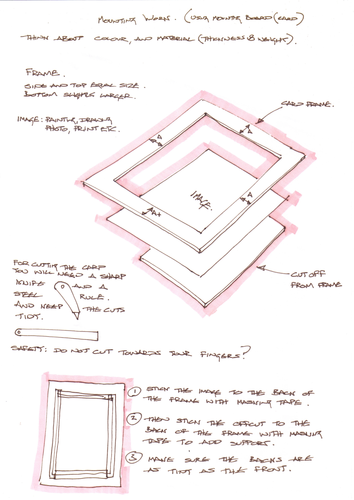 MOUNTING WORK. (USE MOUNTING BOARD (CARD)
THINK ABOUT COLOUR, AND MATERIAL (THICKNESS & WEIGHT).
FRAME.
SIDE AND TOP EQUAL SIZE.
BOTTOM SLIGHTLY LARGER.
IMAGE: PAINTING, DRAWING
PHOTO, PRINT ETC.
CARD FRAME.
A
A
A
A+
IMAGE.
CUT OFF
FROM FRAME
FOR CUTTING THE CARD
YOU WILL NEED A SHARP
KNIFE AND A
STEEL RULE.
AND KEEP THE CUTS
TIDY.
SAFETY: DO NOT CUT TOWARDS YOUR FINGERS?
1 STICK THE IMAGE TO THE BACK OF
THE FRAME WITH MASKING TAPE.
2 THEN STICK THE OFFCUT TO THE
BACK OF THE FRAME WITH MASKING
TAPE TO ADD SUPPORT.
3 MAKE SURE THE BACKS ARE
AS TIDY AS THE FRONT.